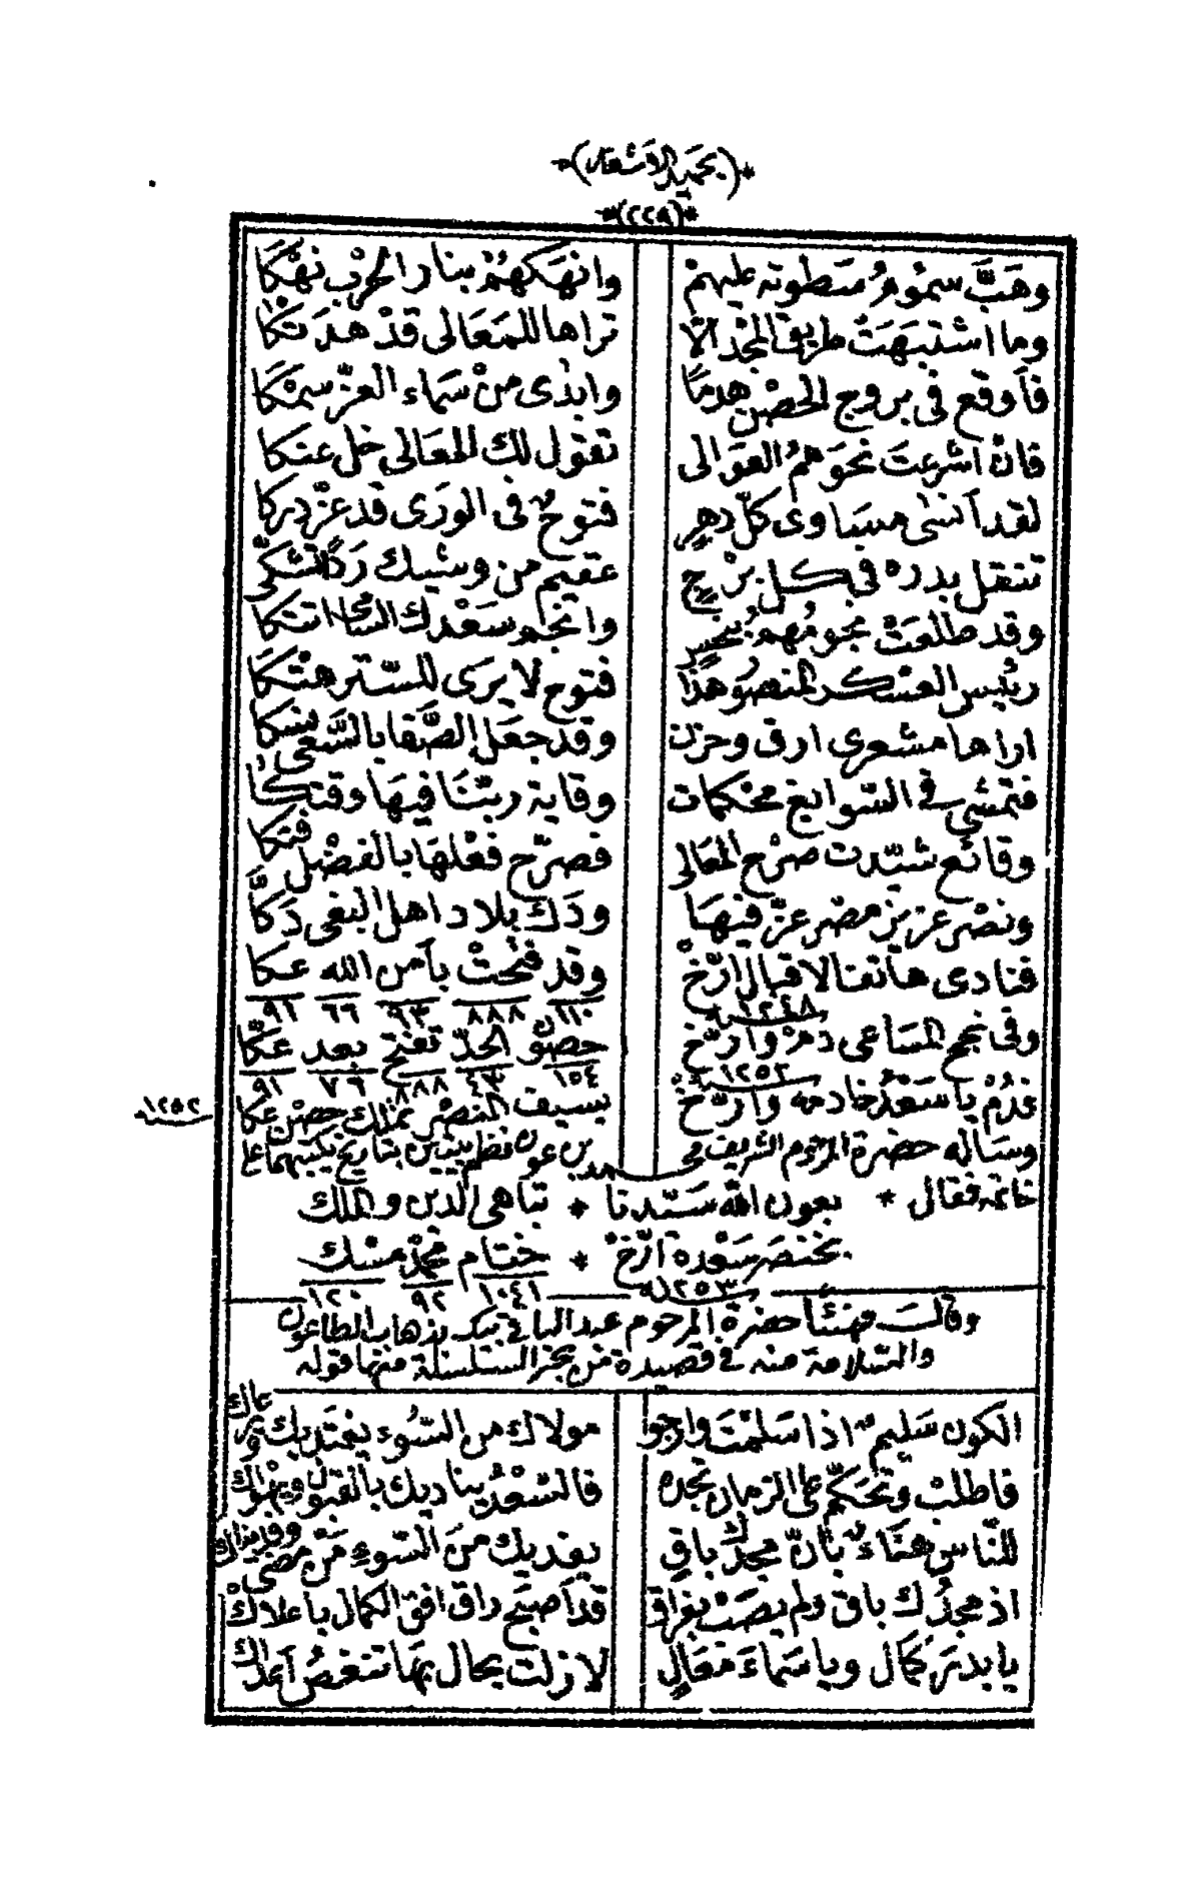 *(بحميد الاشعار)*
*(٢٢٩)*
وهَبَّ سموم سَطوته عليهمْ وانهكهُمْ بنار الحرْب نهْكا
وما اشتبهَتْ طريق المجْد الّا تراها للمَعَالى قدْ هدَتكا
فأوقع فى بروج الحصْن هدمًا وابدى منْ سَماء العزّ سمْكا
فانْ اشرعتَ نحوَهمُ العوالى تقول لك المعَالى خل عنكا
لقد أنسَى مساوى كلّ دهرٍ فتوحٌ فى الورَى قد عزّ دركا
تنقل بدره فى كل برْجٍ عقيم من وشيك ردًا تشكّى
وقد طلعَتْ نجومُهمُ بنحسٍ وانجم سَعْدك
رئيس العسْكر المنصور هذا فتوح لا يرَى للسّتر هتْكا
اراها مشعرى ارق وحزن وقد جعَل الصَّفا بالسَّعى نسكا
فتمشى فى السّوابغ محْكمات وقاية ربّنَا فيهَا وقتكا
وقائع شيّدت صرْح المعَالى فصرّح فعْلهَا بالفضْل فتكا
ونصْر عزيز مصْر عزّ فيهَا ودَكّ بلاد اهل البغى دَكّا
فنادى هاتف الاقبال ارّخْ وقد فتحتْ بأمن الله عكا
١٢٤٨ ١١٠ ٨٨٨ ٩٣ ٦٦ ٩١
وفى نجح المسَاعى دمْ وارّخْ حصنْ الجدّ تفتح بعد عكّا
١٢٥٢ ١٥٤ ٤٣ ٨٨٨ ٧٦ ٩١
فدُمْ يا سَعْدُ خادمه وارّخْ بسيف النصْر تملك حصْن عكا
١٢٥٢
وسَاله حضرة المرحوم الشريف محمد بن عون نظم بيتين بتاريخ يكتبهما على
خاتمه فقال * بعون الله سَيّدنا * تباهى الدين والملك
بخنصَر سَعْده ارّخْ * ختام محمدْ مسْك
١٢٥٣ ١٠٤١ ٩٢ ١٢٠
وقالـ مهنئًا حضرة المرحوم عبد الباقى بك بذهاب الطاعون
والسّلامة منه فى قصيدة من بحر السلسلة منها قوله
الكون سَليم اذا سَلمْتَ وارجوا مولاك من السّوء يفتديك
فاطلبْ وتحَكّم على الزمان تجده فالسّعدُ يناديك بالقبول
للنّاس هنَاء بانّ مجدك باقٍ يفديك منَ السّوء مَن مضى
اذ مجدُك باق ولم يصَبْ بفراق قد أصبَح راق افق الكمال باعلاكْ
يا بدْرَ كمَال ويا سَماءَ معَالٍ لا زلت بحال بهَا تنغصُ أعداك